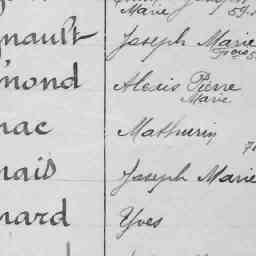 Marie
gnault Joseph Marie
Fçois
mond Alexis Pierre
Marie
nac Mathurin
nais Joseph Marie
nard Yves